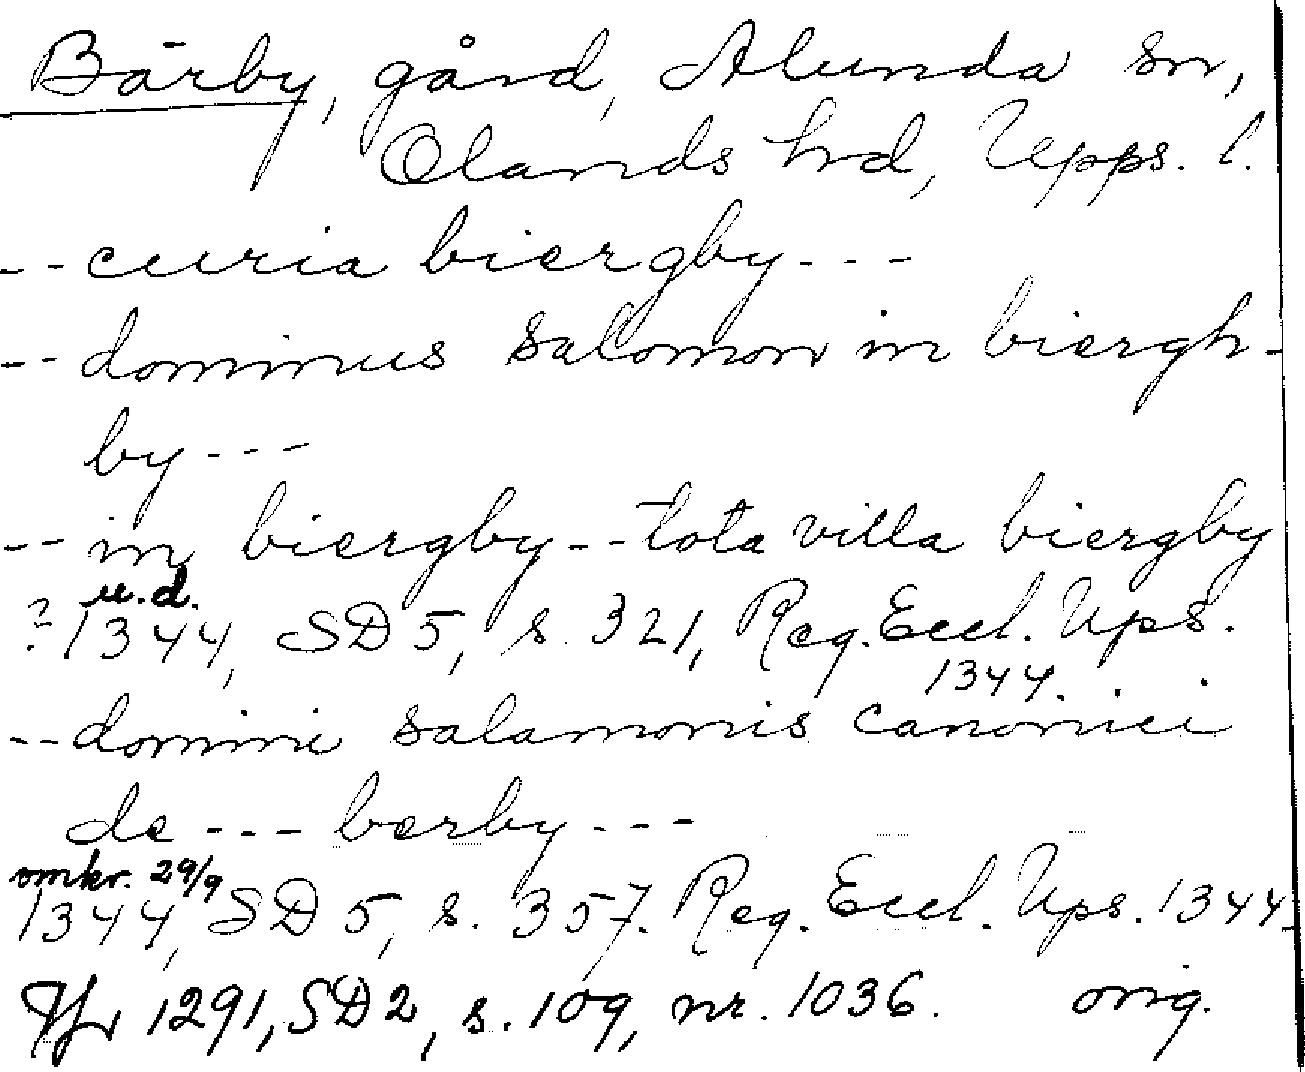 Bärby, gård, Alunda sn,
Olands hd, Upps. l.
-- curia biergby ---
-- dominus salomon in biergh-
by ---
-- in biergby -- tota villa biergby
u.d.
? 1344, SD 5, s. 321, Reg. Eccl. Ups.
1344.
-- domini salamonis canonici
de --- berby ---
omkr. 29/9
1344, SD 5, s. 357. Reg. Eccl. Ups. 1344
Jfr 1291, SD 2, s. 109, nr. 1036. orig.